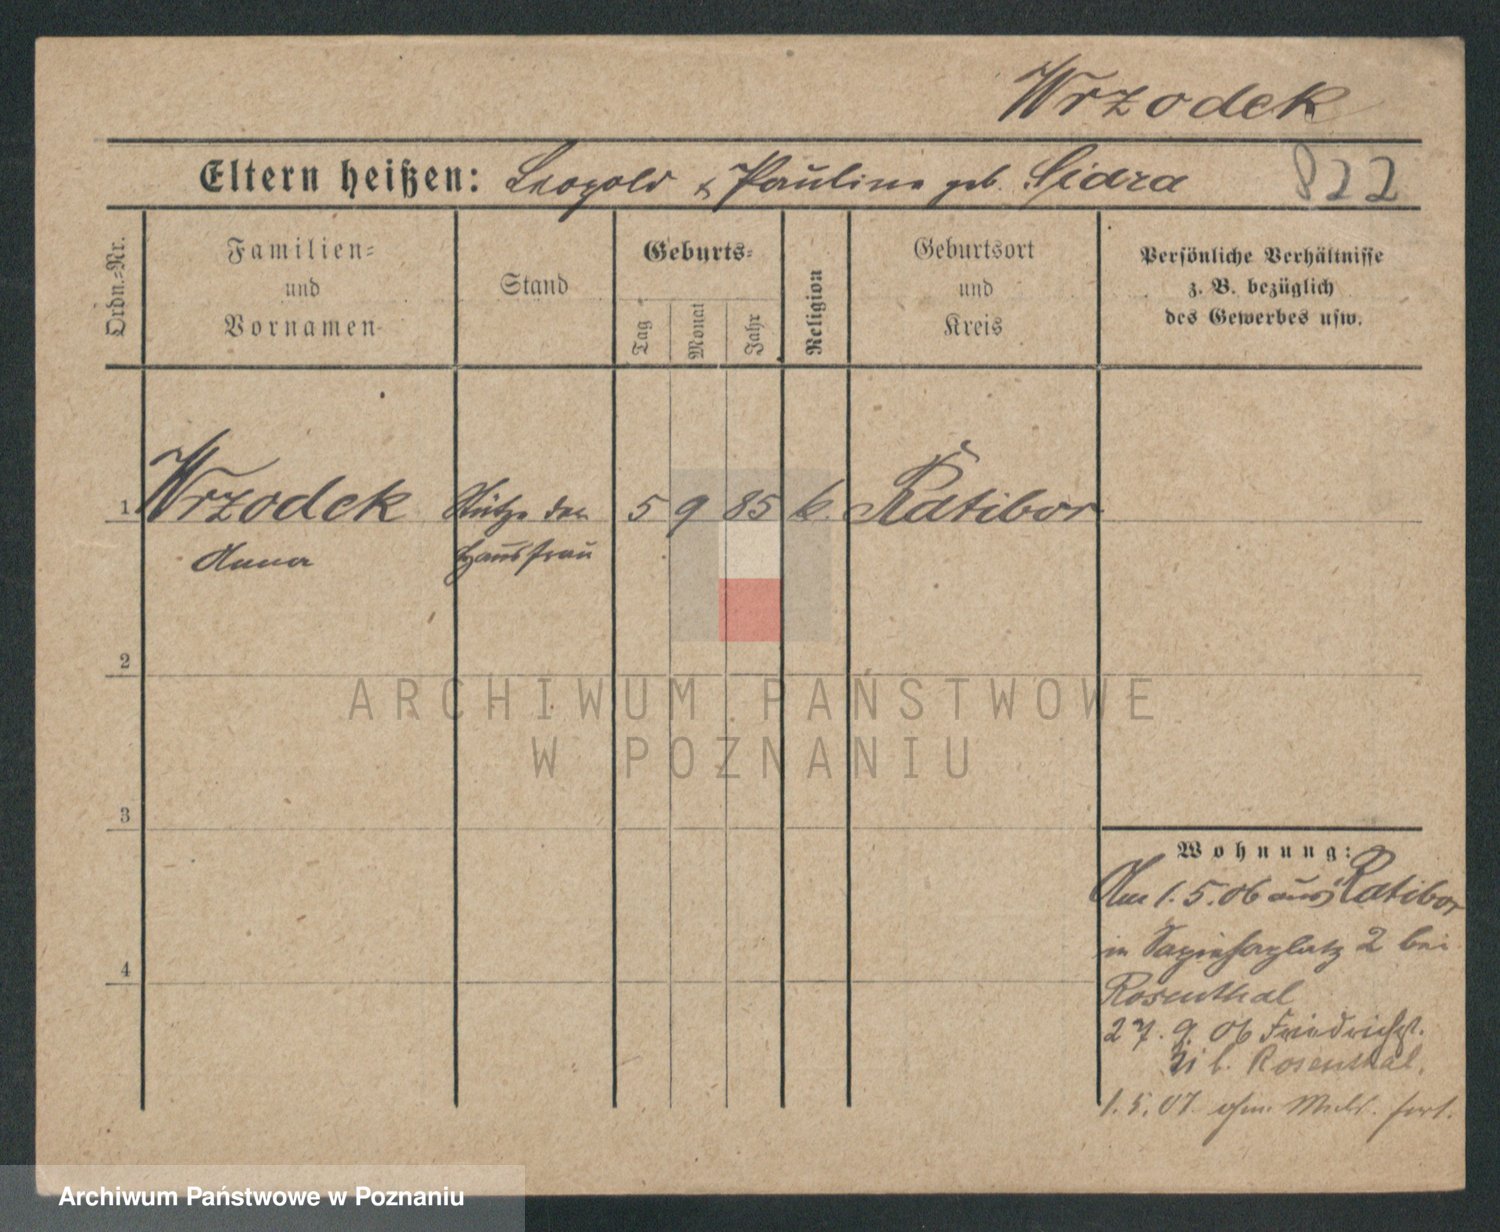 Wrzodek
Eltern heißen: Leopold & Pauline geb. Sidra
822
Ordn.-Nr.
Familien-
und
Vornamen
Stand
Geburts-
Tag
Monat
Jahr
Religion
Geburtsort
und
Kreis
Persönliche Verhältnisse
z. B. bezüglich
des Gewerbes usw.
1 Wrzodek Stütze der 5 9 85 k. Ratibor
Anna Hausfrau
2
ARCHIWUM PAŃSTWOWE
W POZNANIU
3
Wohnung:
Am 1.5.06 aus Ratibor
in Sapiehaplatz 2 bei
4
Rosenthal
27.9.06 Friedrichst.
b. Rosenthal.
1.5.07. ohne Meld. fort.
Archiwum Państwowe w Poznaniu